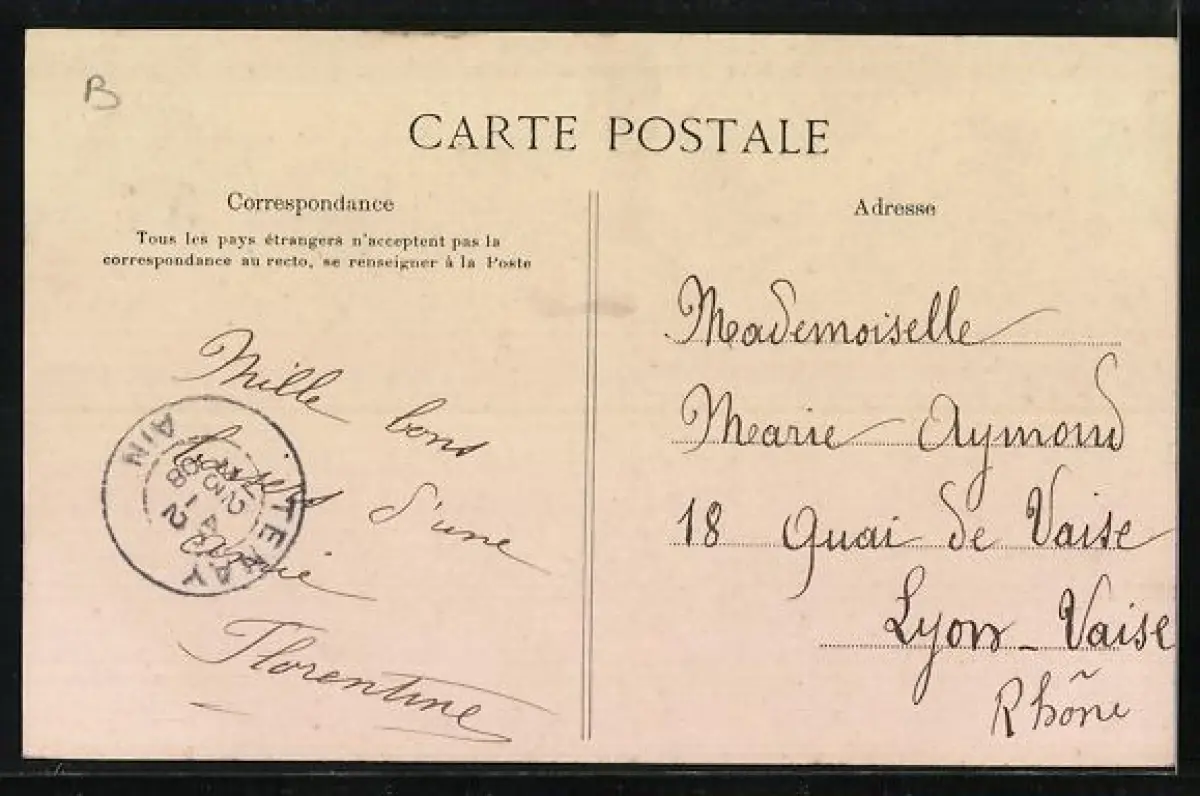 B
CARTE POSTALE
Correspondance
Tous les pays étrangers n'acceptent pas la
correspondance au recto, se renseigner à la Poste
Mille bons
baisers d'une
amie
Florentine
Adresse
Mademoiselle
Marie Aymond
18 Quai de Vaise
Lyon-Vaise
Rhône
AIN